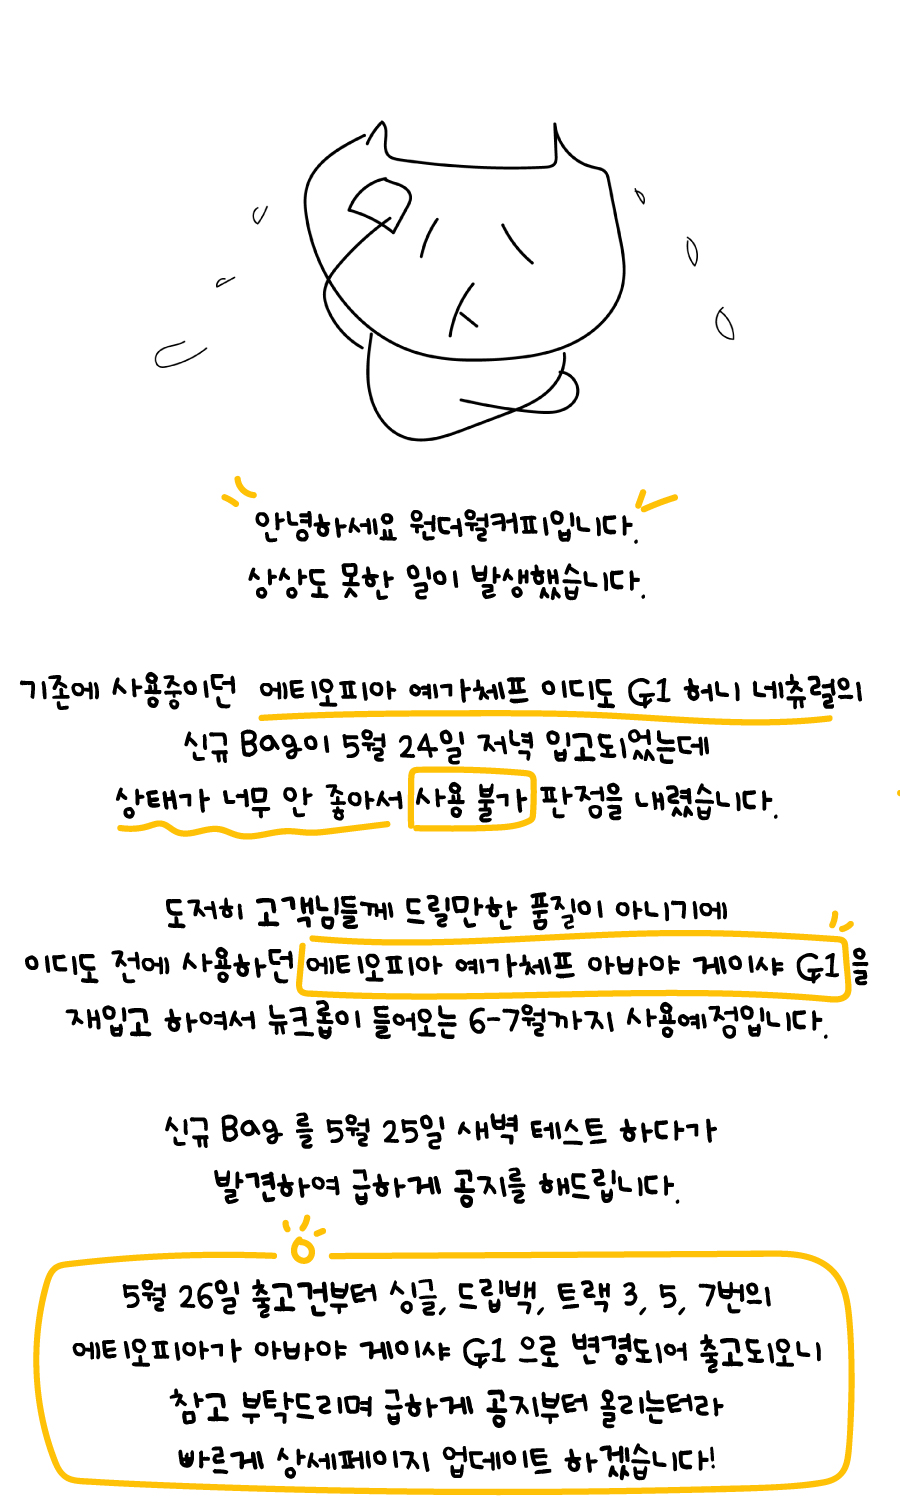 안녕하세요 원더월커피입니다.
상상도 못한 일이 발생했습니다.
기존에 사용중이던 에티오피아 예가체프 이디도 G1 허니 네츄럴의
신규 Bag이 5월 24일 저녁 입고되었는데
상태가 너무 안 좋아서 사용 불가 판정을 내렸습니다.
도저히 고객님들께 드릴만한 품질이 아니기에
이디도 전에 사용하던 에티오피아 예가체프 아바야 게이샤 G1을
재입고 하여서 뉴크롭이 들어오는 6-7월까지 사용예정입니다.
신규 Bag 를 5월 25일 새벽 테스트 하다가
발견하여 급하게 공지를 해드립니다.
5월 26일 출고건부터 싱글, 드립백, 트랙 3, 5, 7번의
에티오피아가 아바야 게이샤 G1 으로 변경되어 출고되오니
참고 부탁드리며 급하게 공지부터 올리는터라
빠르게 상세페이지 업데이트 하겠습니다!